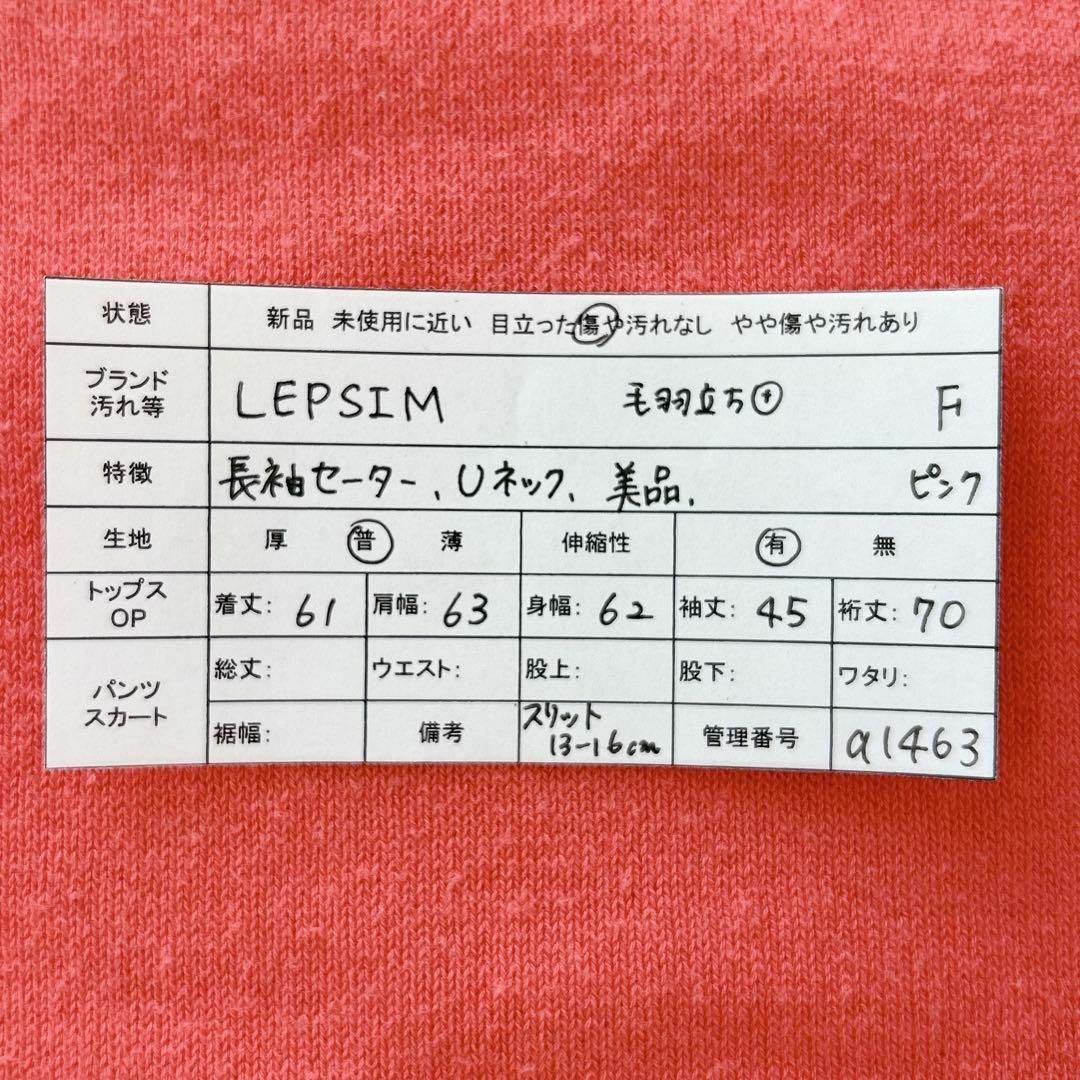 状態 新品 未使用に近い 目立った傷や汚れなし やや傷や汚れあり
ブランド
汚れ等 LEPSIM 毛羽立ち⊕ F
特徴 長袖セーター、Uネック、美品、 ピンク
生地 厚 普 薄 伸縮性 有 無
トップス
OP 着丈: 61 肩幅: 63 身幅: 62 袖丈: 45 裄丈: 70
パンツ
スカート 総丈: ウエスト: 股上: 股下: ワタリ:
裾幅: 備考 スリット
13-16cm 管理番号 a1463